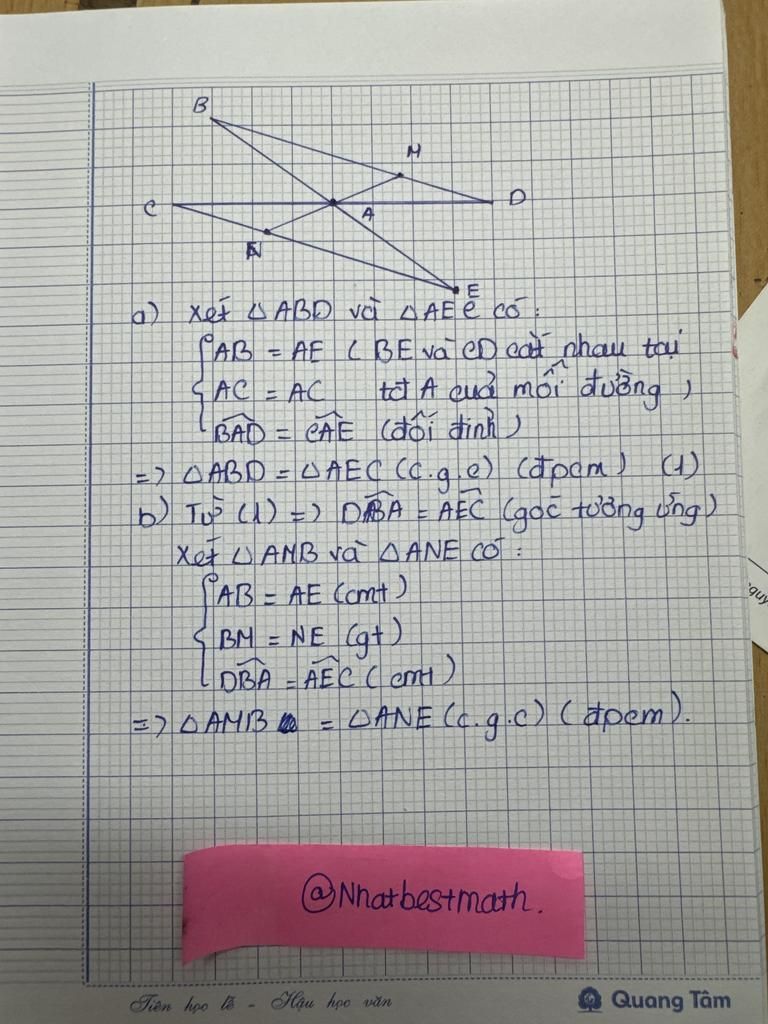 B
M
C
A
D
N
E
a) Xét △ABD và △AEC có:
AB = AE (BE và CD cắt nhau tại
AC = AC tđ A của mỗi đường)
BAD = CAE (đối đỉnh)
=> △ABD = △AEC (c.g.c) (đpcm) (1)
b) Từ (1) => DBA = AEC (góc tương ứng)
Xét △AMB và △ANE có:
AB = AE (cmt)
BM = NE (gt)
DBA = AEC (cmt)
=> △AMB = △ANE (c.g.c) (đpcm).
@Nhatbestmath.
Tiên học lễ - Hậu học văn
Quang Tâm
quy